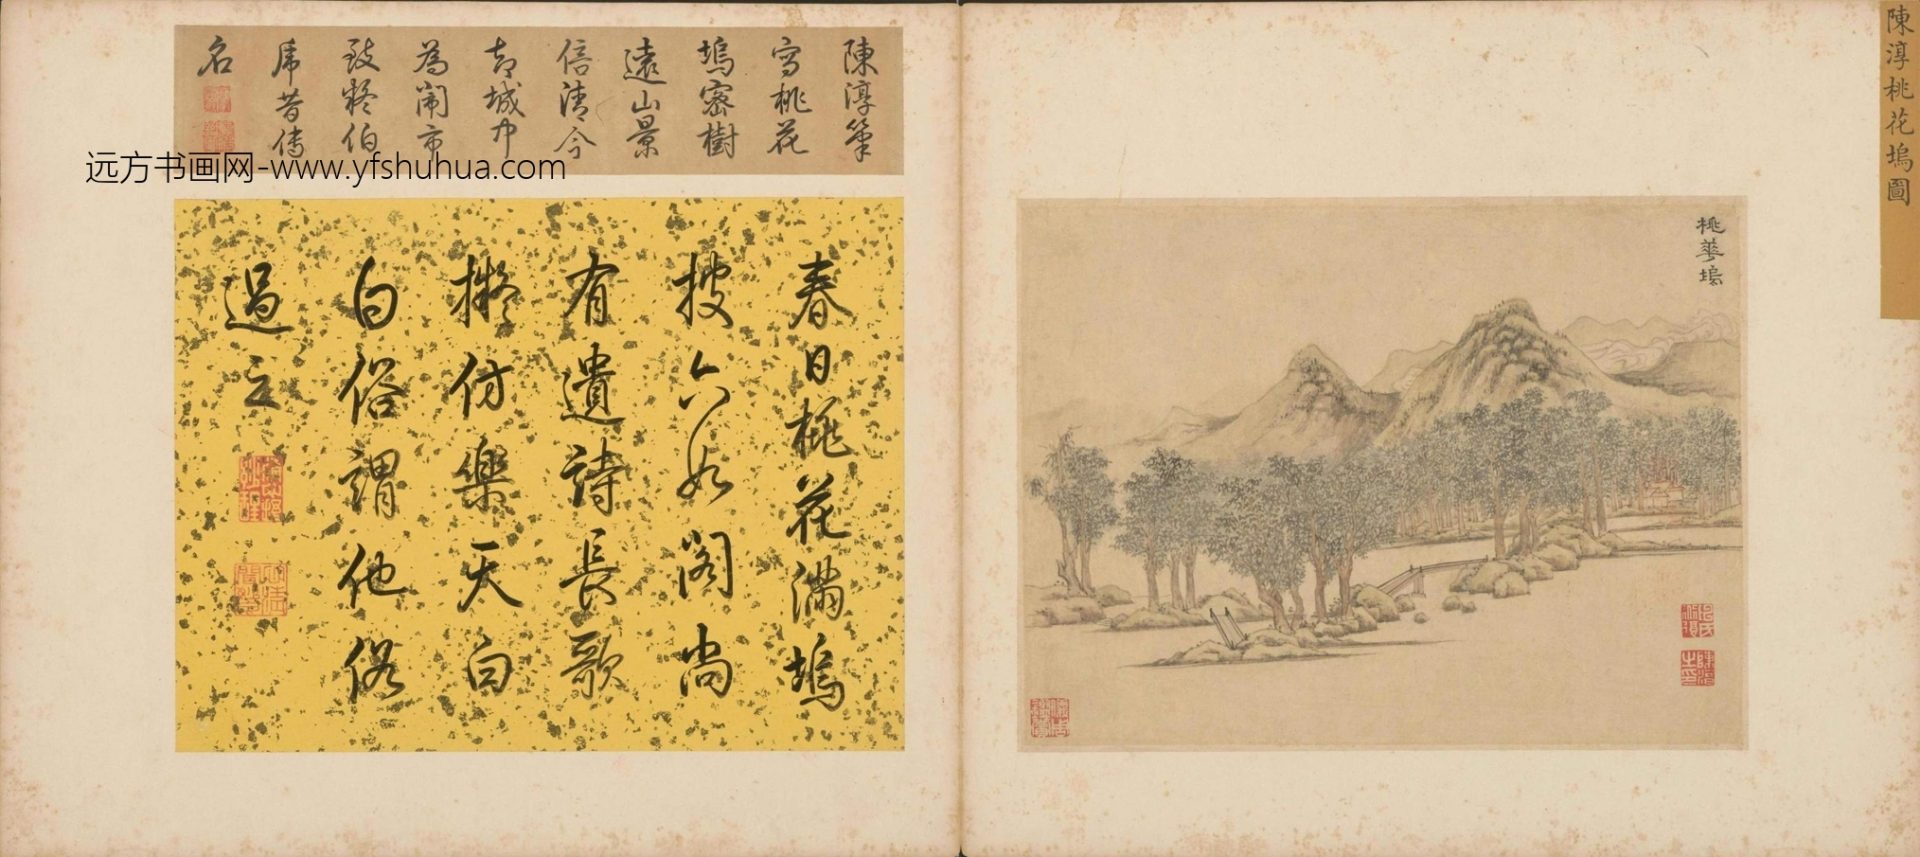 陳淳桃花塢圖
桃華塢
陳淳筆
寫桃花
塢密樹
遠山景
倍清今
却城中
為鬧市
致疑伯
虎昔傳
名
春日桃花滿塢
披六如閣尚
有遺詩長歌
擬仿樂天白
白俗謂他俗
過之
远方书画网-www.yfshuhua.com